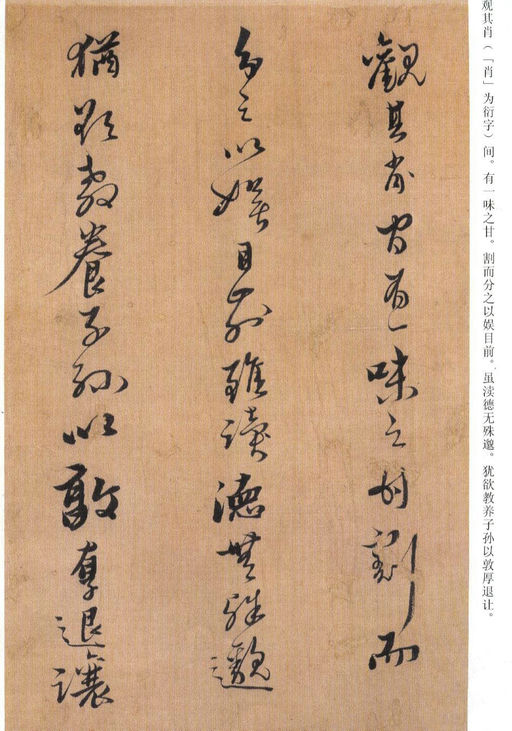 观其肖（「肖」为衍字）间。有一味之甘。割而分之以娱目前。虽渎德无殊邈。犹欲教养子孙以敦厚退让。
觀其肖間有一味之甘割而
分之以娱目前雖讀德無殊邈
猶欲教養子孫以敦厚退讓